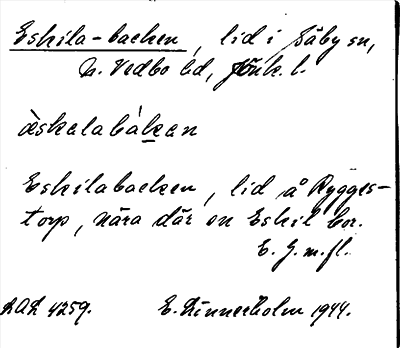 Eskila-backen, lid i Säby sn,
N. Vedbo hd, Jönk. l.
æ̀skalabákan
Eskilabacken, lid å Rygges-
torp, nära där en Eskil bor.
E. G. m. fl.
ULD 4259. E. Linnerholm 1944.